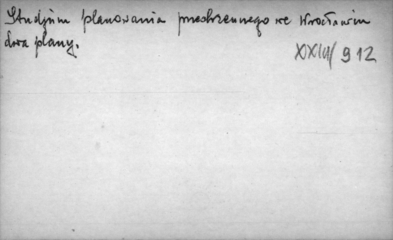 Studjum planowania przestrzennego we Wrocławiu
dwa plany.
XXIII/912